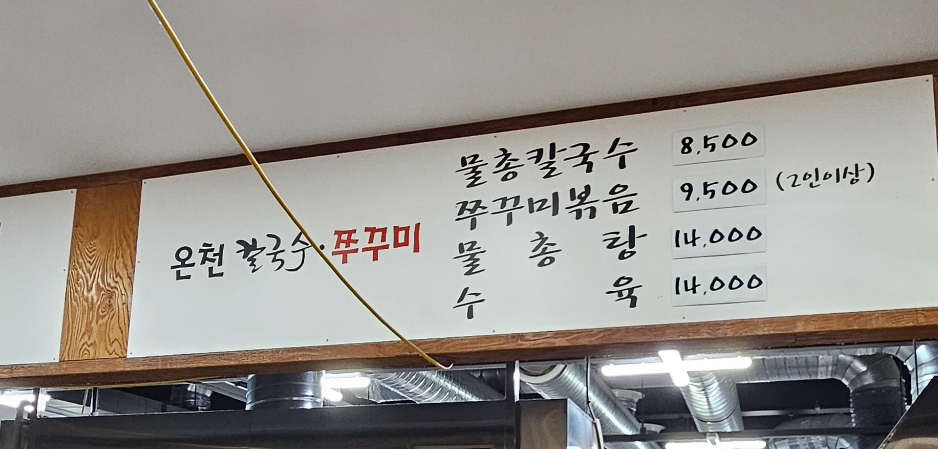 온천 칼국수·쭈꾸미
물총칼국수 8,500
쭈꾸미볶음 9,500 (2인이상)
물총탕 14,000
수육 14,000